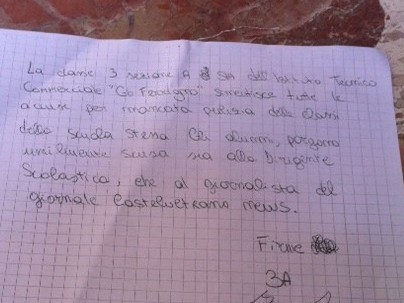 La classe 3 sezione A SIA dell'Istituto Tecnico
Commerciale "GB Ferrigno" smentisce tutte le
accuse per mancata pulizia delle classi
della scuola stessa. Gli alunni, porgono
umilmente scusa sia alla Dirigente
Scolastica, che al giornalista del
giornale Castelvetrano news.
Firme
3A